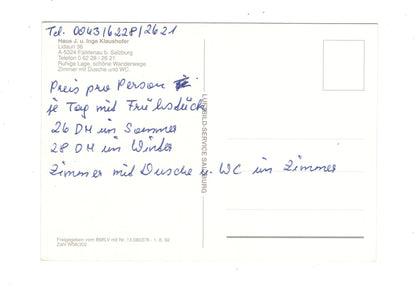 Tel. 0043/6228/2621
Haus J. u. Inge Klaushofer
Lidaun 36
A-5324 Faistenau b. Salzburg
Telefon 0 62 28 / 26 21
Ruhige Lage, schöne Wanderwege
Zimmer mit Dusche und WC.
Preis pro Person
je Tag mit Frühstück
26 DM im Sommer
28 DM im Winter
Zimmer mit Dusche u. WC im Zimmer
LUFTBILD-SERVICE SALZBURG
Freigegeben vom BMfLV mit Nr.